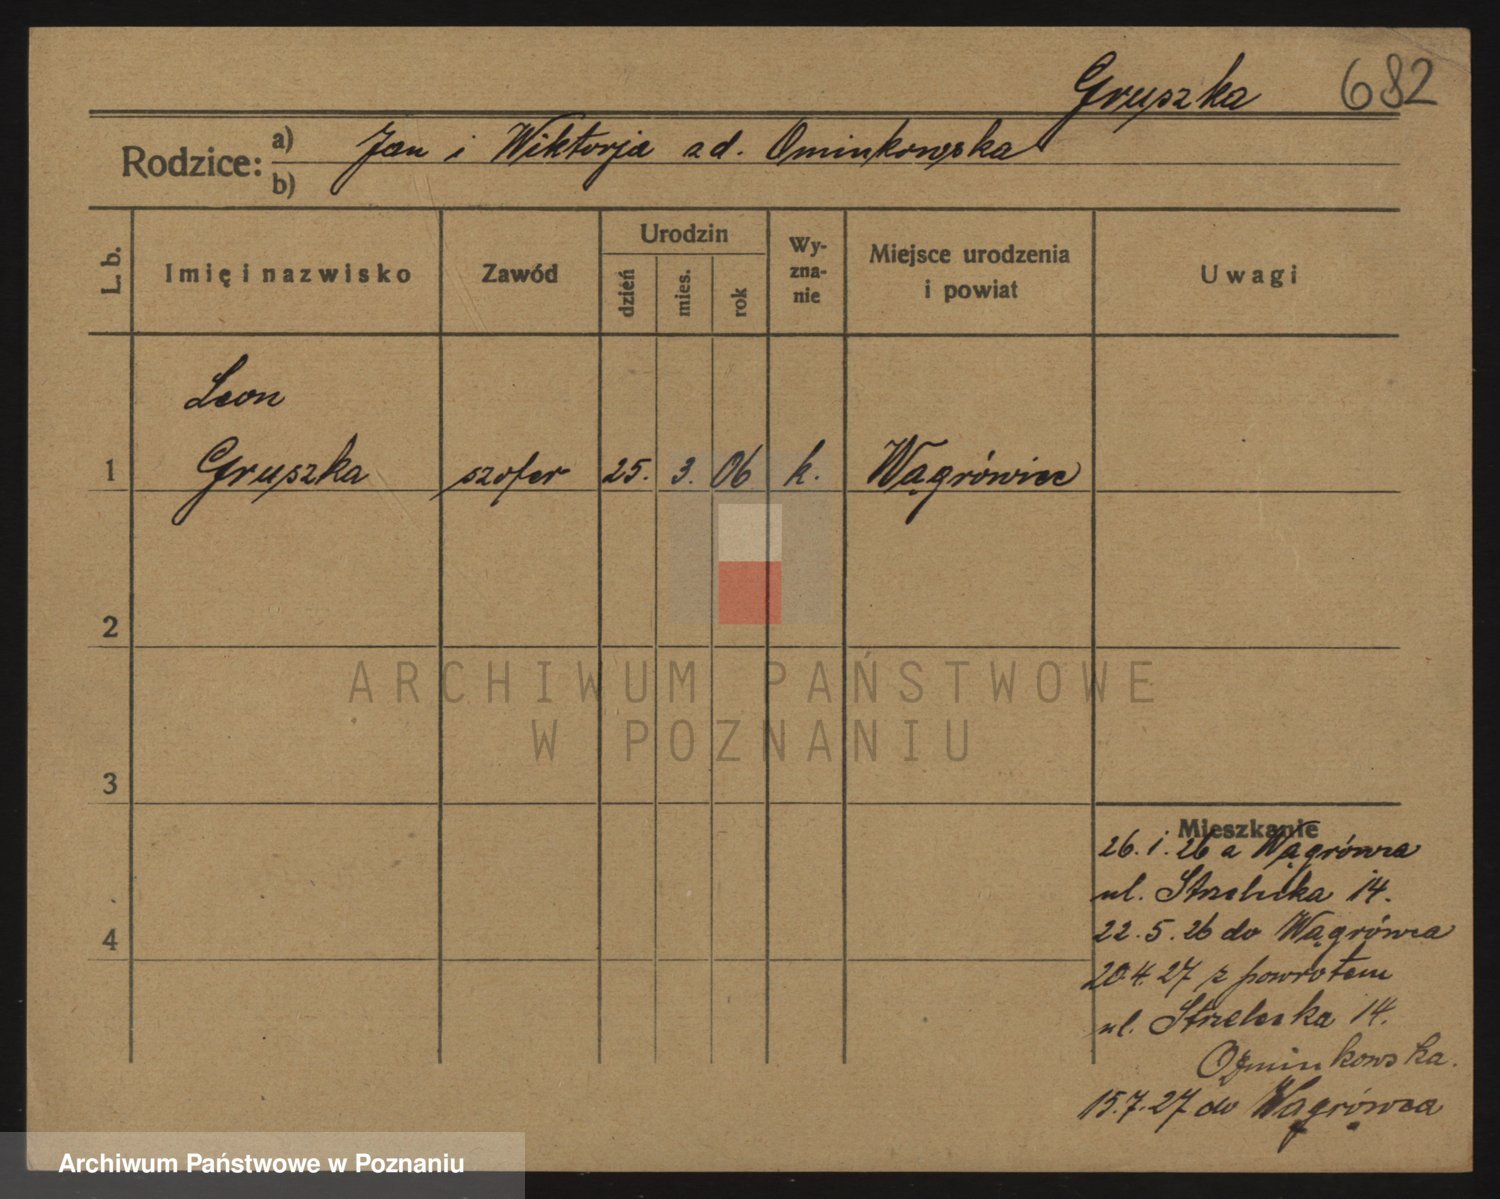 Gruszka 682
Rodzice: a) Jan i Wiktorja zd. Ominkowska
b)
L. b. Imię i nazwisko Zawód Urodzin dzień mies. rok Wy-zna-nie Miejsce urodzenia i powiat Uwagi
Leon
1 Gruszka szofer 25. 3. 06 k. Wągrówiec
2
ARCHIWUM PAŃSTWOWE
W POZNANIU
3
Mieszkanie
26. 1. 26 z Wągrówca
ul. Strzelecka 14.
4 22. 5. 26 do Wągrówca
20.4. 27 z powrotem
ul. Strzelecka 14.
Ozminkowska.
15.7.27 do Wągrówca
Archiwum Państwowe w Poznaniu